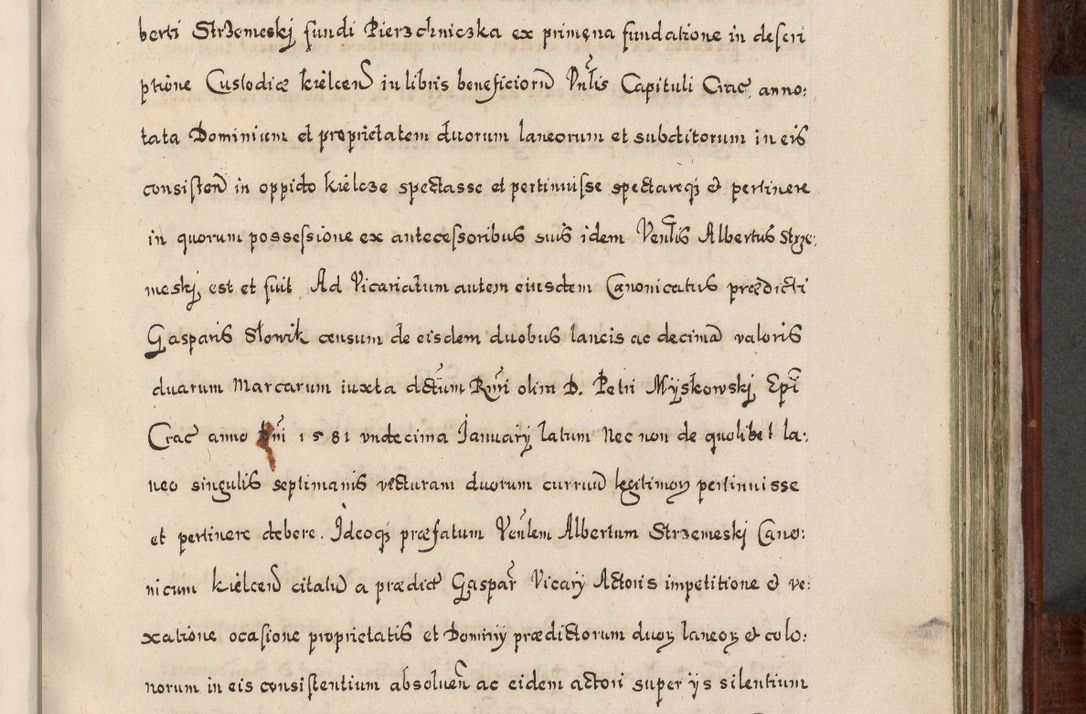 berti Strzemeskj fundi Pierzchniczka ex primęna fundatione in descri
ptione Custodiæ kielceñ in libris beneficiorũ Vnlis Capituli Crac. anno:
tata Dominium et proprietatem duorum laneorum et subditorum in eis
consisteñ in oppido kielcze spectasse et pertinuisse spectareq; et pertinere
in quorum possessione ex antecessoribus suis idem Venlis Albertus Strze:
meskj, est et fuit Ad Vicariatum autem eiusdem Canonicatus prædicti
Gasparis Słowik censum de eisdem duobus laneis ac decimã valoris
duarum Marcarum iuxta dctum Rmi olim D. Petri Myskowskj Epi
Crac anno Dni 1581 vndecima Januarij latum Nec non de quolibet la:
neo singulis septimanis vecturam duorum curruũ legitimoꝝ pertinuisse
et pertinere debere. Ideoq; præfatum Venlem Albertum Strzemeskj Cano:
nicum kielceñ citatũ a prædict Gaspar Vicarij Actoris impetitione et ve:
xatione ocasione proprietatis et Dominij prædictorum duoꝝ laneoꝝ et colo:
norum in eis consistentium absolueñ ac eidem actori super ijs silentium